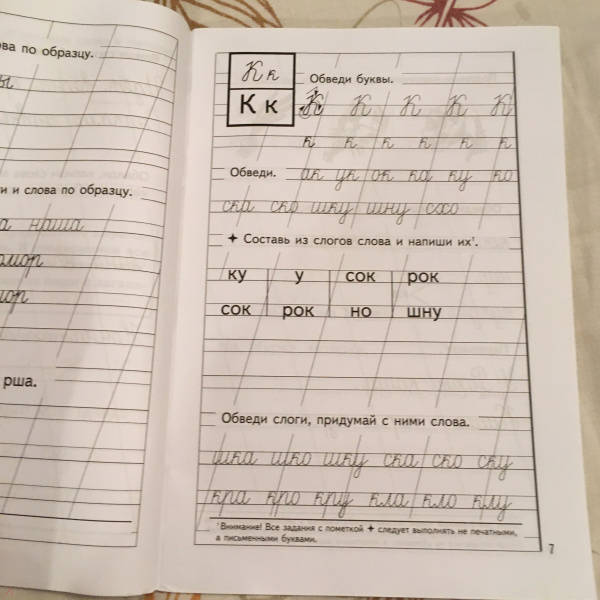 ва по образцу.
ы
и и слова по образцу.
а наша
омор
мор
рша.
К к
К к
Обведи буквы.
К К К К К
к к к к к к
Обведи. ак ук ок ка ку ко
ска ско шку шну схо
✦ Составь из слогов слова и напиши их¹.
ку у сок рок
сок рок но шну
Обведи слоги, придумай с ними слова.
шка шко шку ска ско ску
кра кро кру кла кло клу
¹Внимание! Все задания с пометкой ✦ следует выполнять не печатными,
а письменными буквами.
7